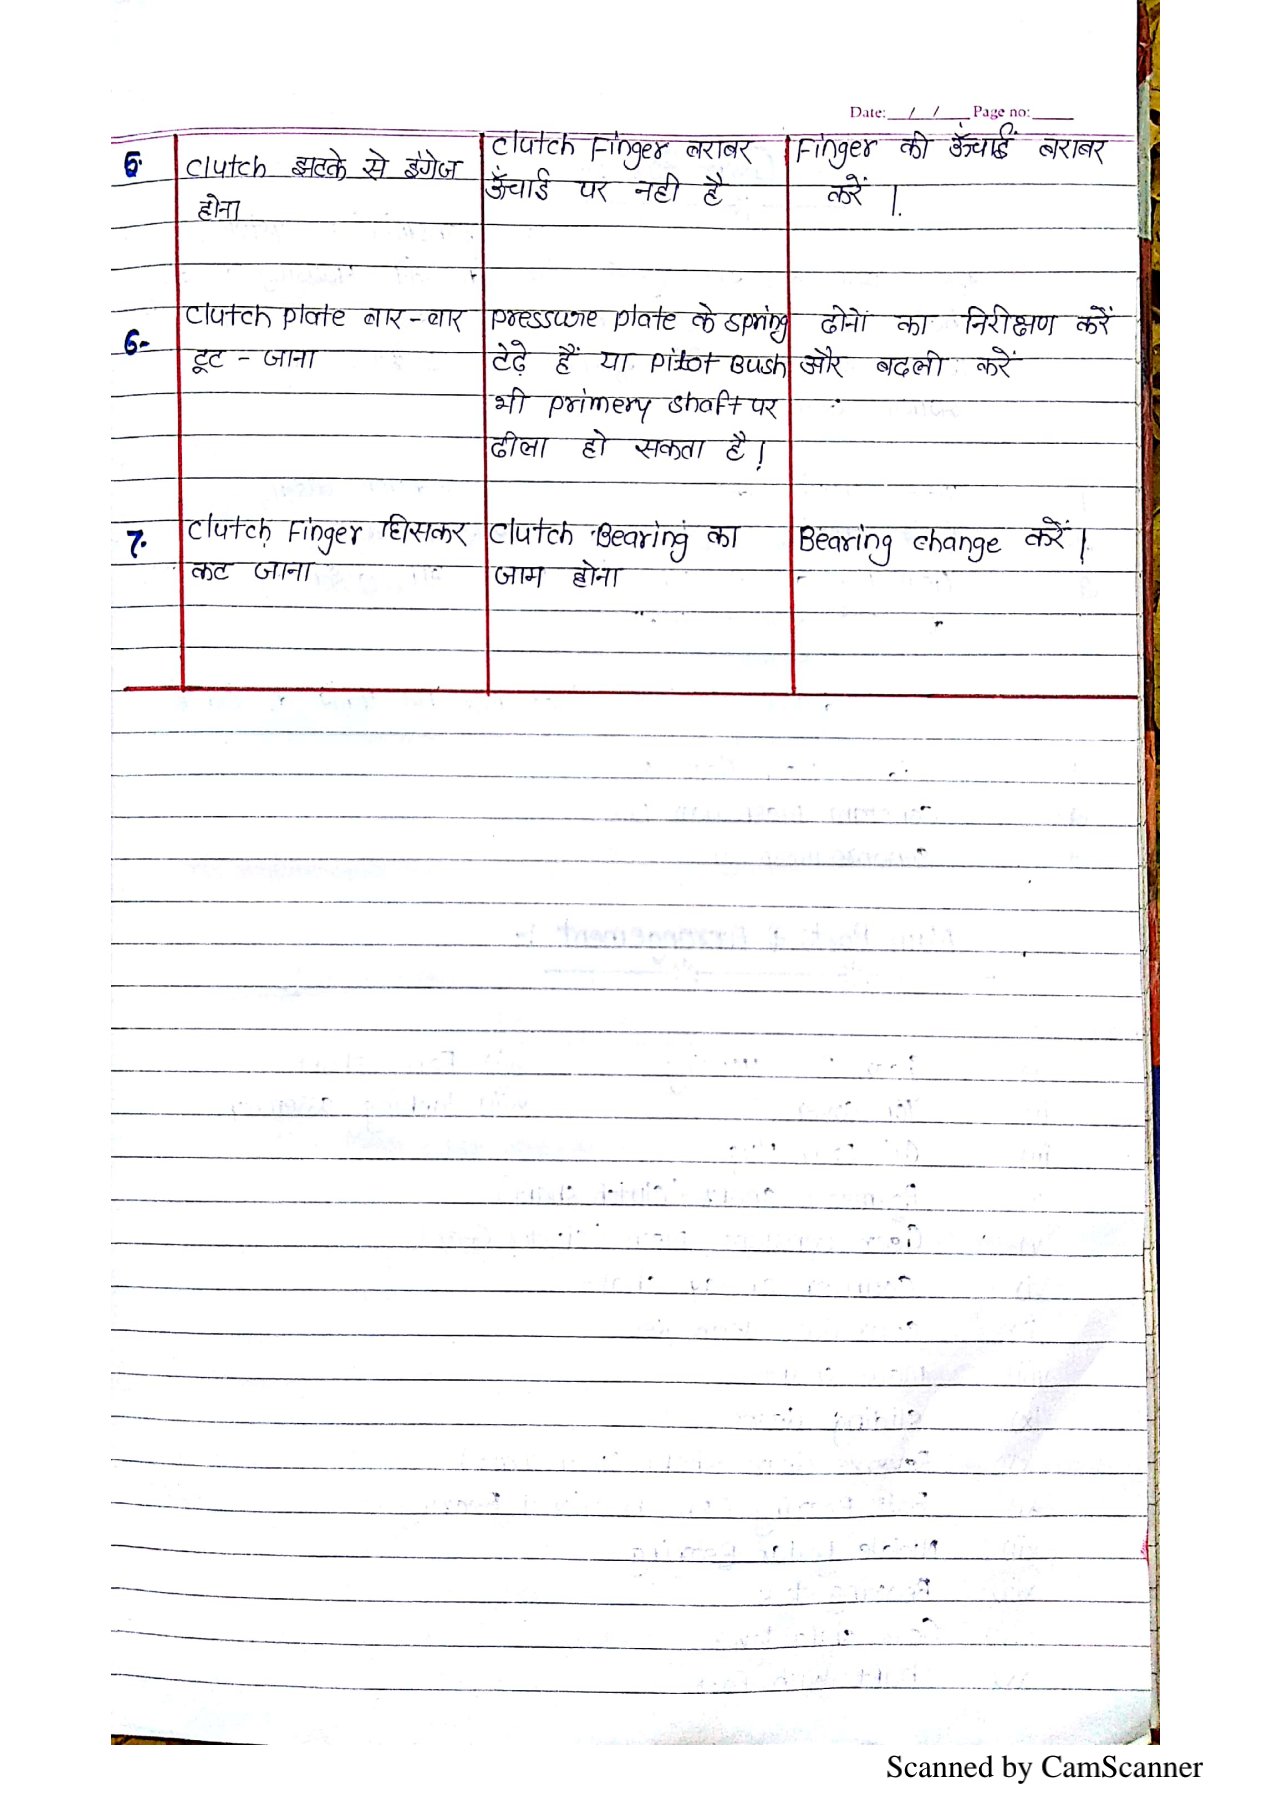 Date: / / Page no:
5.
Clutch झटके से इंगेज
होना
Clutch Finger बराबर
ऊँचाई पर नही है
Finger की ऊँचाई बराबर
करें ।
6-
Clutch plate बार-बार
टूट - जाना
pressure plate के spring
टेढ़े हैं या pilot Bush
भी primery shaft पर
ढीला हो सकता है।
दोनों का निरीक्षण करें
और बदली करें
7.
Clutch Finger घिसकर
कट जाना
Clutch Bearing का
जाम होना
Bearing change करें।
Scanned by CamScanner